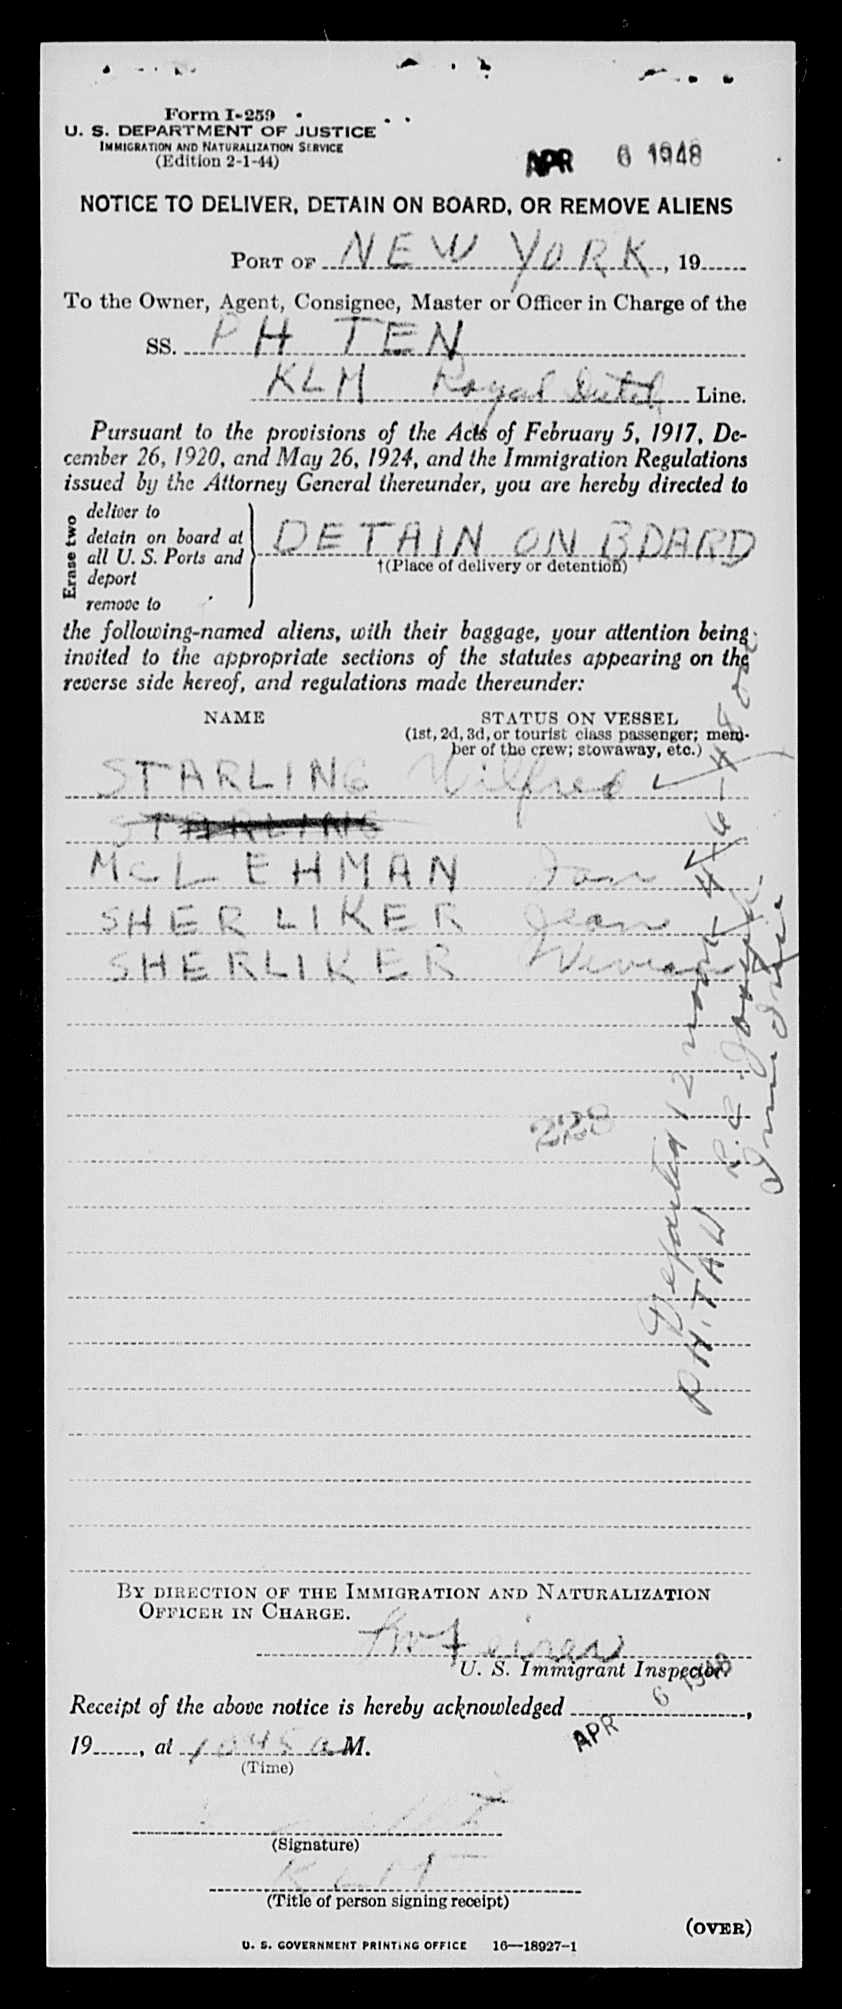 Form I-259
U. S. DEPARTMENT OF JUSTICE
IMMIGRATION AND NATURALIZATION SERVICE
(Edition 2-1-44)
APR 6 1948
NOTICE TO DELIVER, DETAIN ON BOARD, OR REMOVE ALIENS
PORT OF NEW YORK, 19
To the Owner, Agent, Consignee, Master or Officer in Charge of the
SS. PH TEN
KLM Royal Dutch Line.
Pursuant to the provisions of the Acts of February 5, 1917, De-
cember 26, 1920, and May 26, 1924, and the Immigration Regulations
issued by the Attorney General thereunder, you are hereby directed to
Erase two
deliver to
detain on board at
all U. S. Ports and
deport
remove to
DETAIN ON BOARD
†(Place of delivery or detention)
the following-named aliens, with their baggage, your attention being
invited to the appropriate sections of the statutes appearing on the
reverse side hereof, and regulations made thereunder:
NAME STATUS ON VESSEL
(1st, 2d, 3d, or tourist class passenger; mem-
ber of the crew; stowaway, etc.)
STARLING Wilfred ✓
STARLING
McLEHMAN Ian ✓
SHERLIKER Jean
SHERLIKER Vivian
228
Departed 12 noon 4-6-48
PH. TAW
BY DIRECTION OF THE IMMIGRATION AND NATURALIZATION
OFFICER IN CHARGE.
U. S. Immigrant Inspector.
Receipt of the above notice is hereby acknowledged APR 6 1948,
19, at 1045 a M.
(Time)
(Signature)
KLM
(Title of person signing receipt)
(OVER)
U. S. GOVERNMENT PRINTING OFFICE 16—18927-1